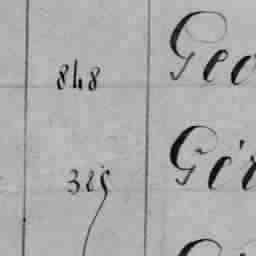 848 Geo
325 Gér